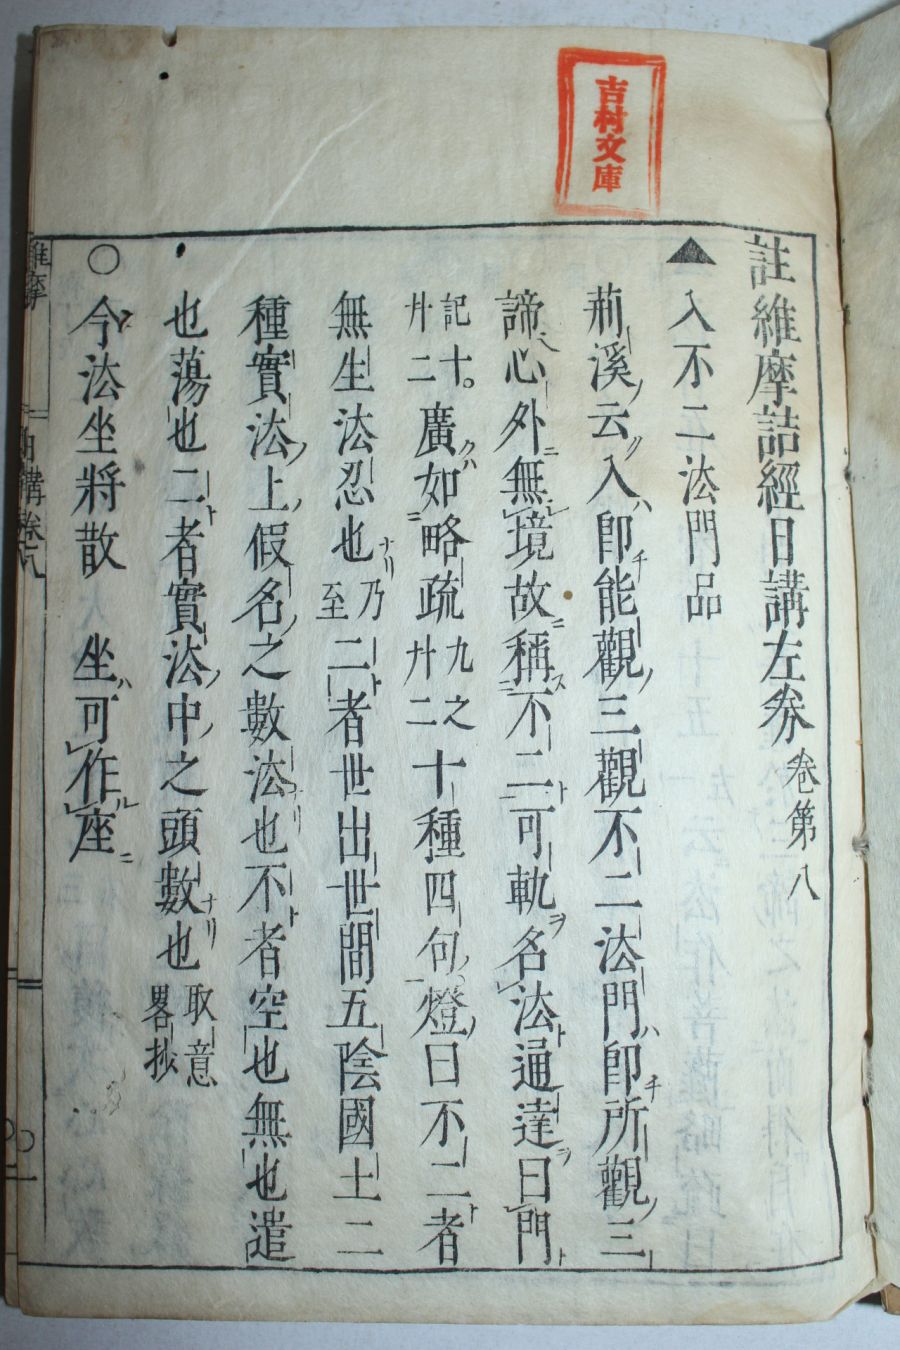 吉村文庫
註維摩詰經日講左券 卷第八
▲入不二法門品
荊溪云入即能觀三觀不二法門即所觀三
諦心外無境故稱不二可軌名法通達曰門
記十。廿二 廣如略疏 九之廿二 十種四句。燈曰不二者
無生法忍也 乃至 二者世出世間五陰國土二
種實法上假名之數法也不者空也無也遣
也蕩也二者實法中之頭數也 取意畧抄
○今法坐將散 坐可作座
維摩
日講卷八